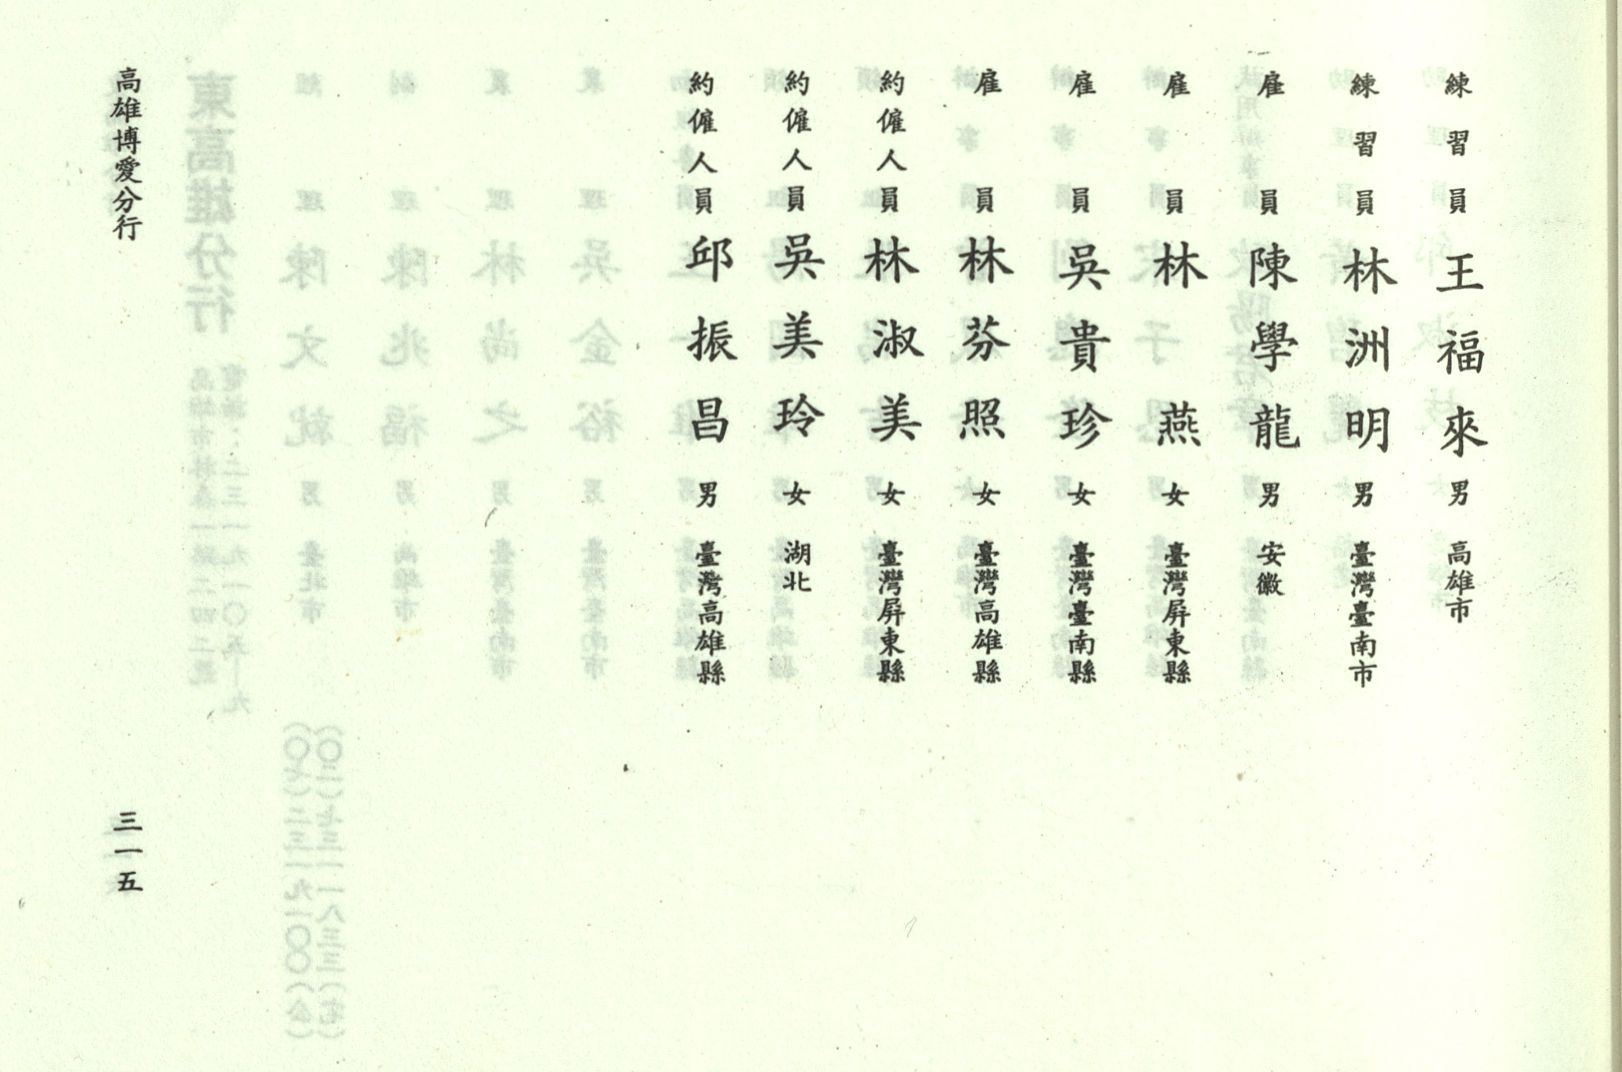 練習員王福來男高雄市
練習員林洲明男臺灣臺南市
雇員陳學龍男安徽
雇員林燕女臺灣屏東縣
雇員吳貴珍女臺灣臺南縣
雇員林芬照女臺灣高雄縣
約僱人員林淑美女臺灣屏東縣
約僱人員吳美玲女湖北
約僱人員邱振昌男臺灣高雄縣
高雄博愛分行
三一五